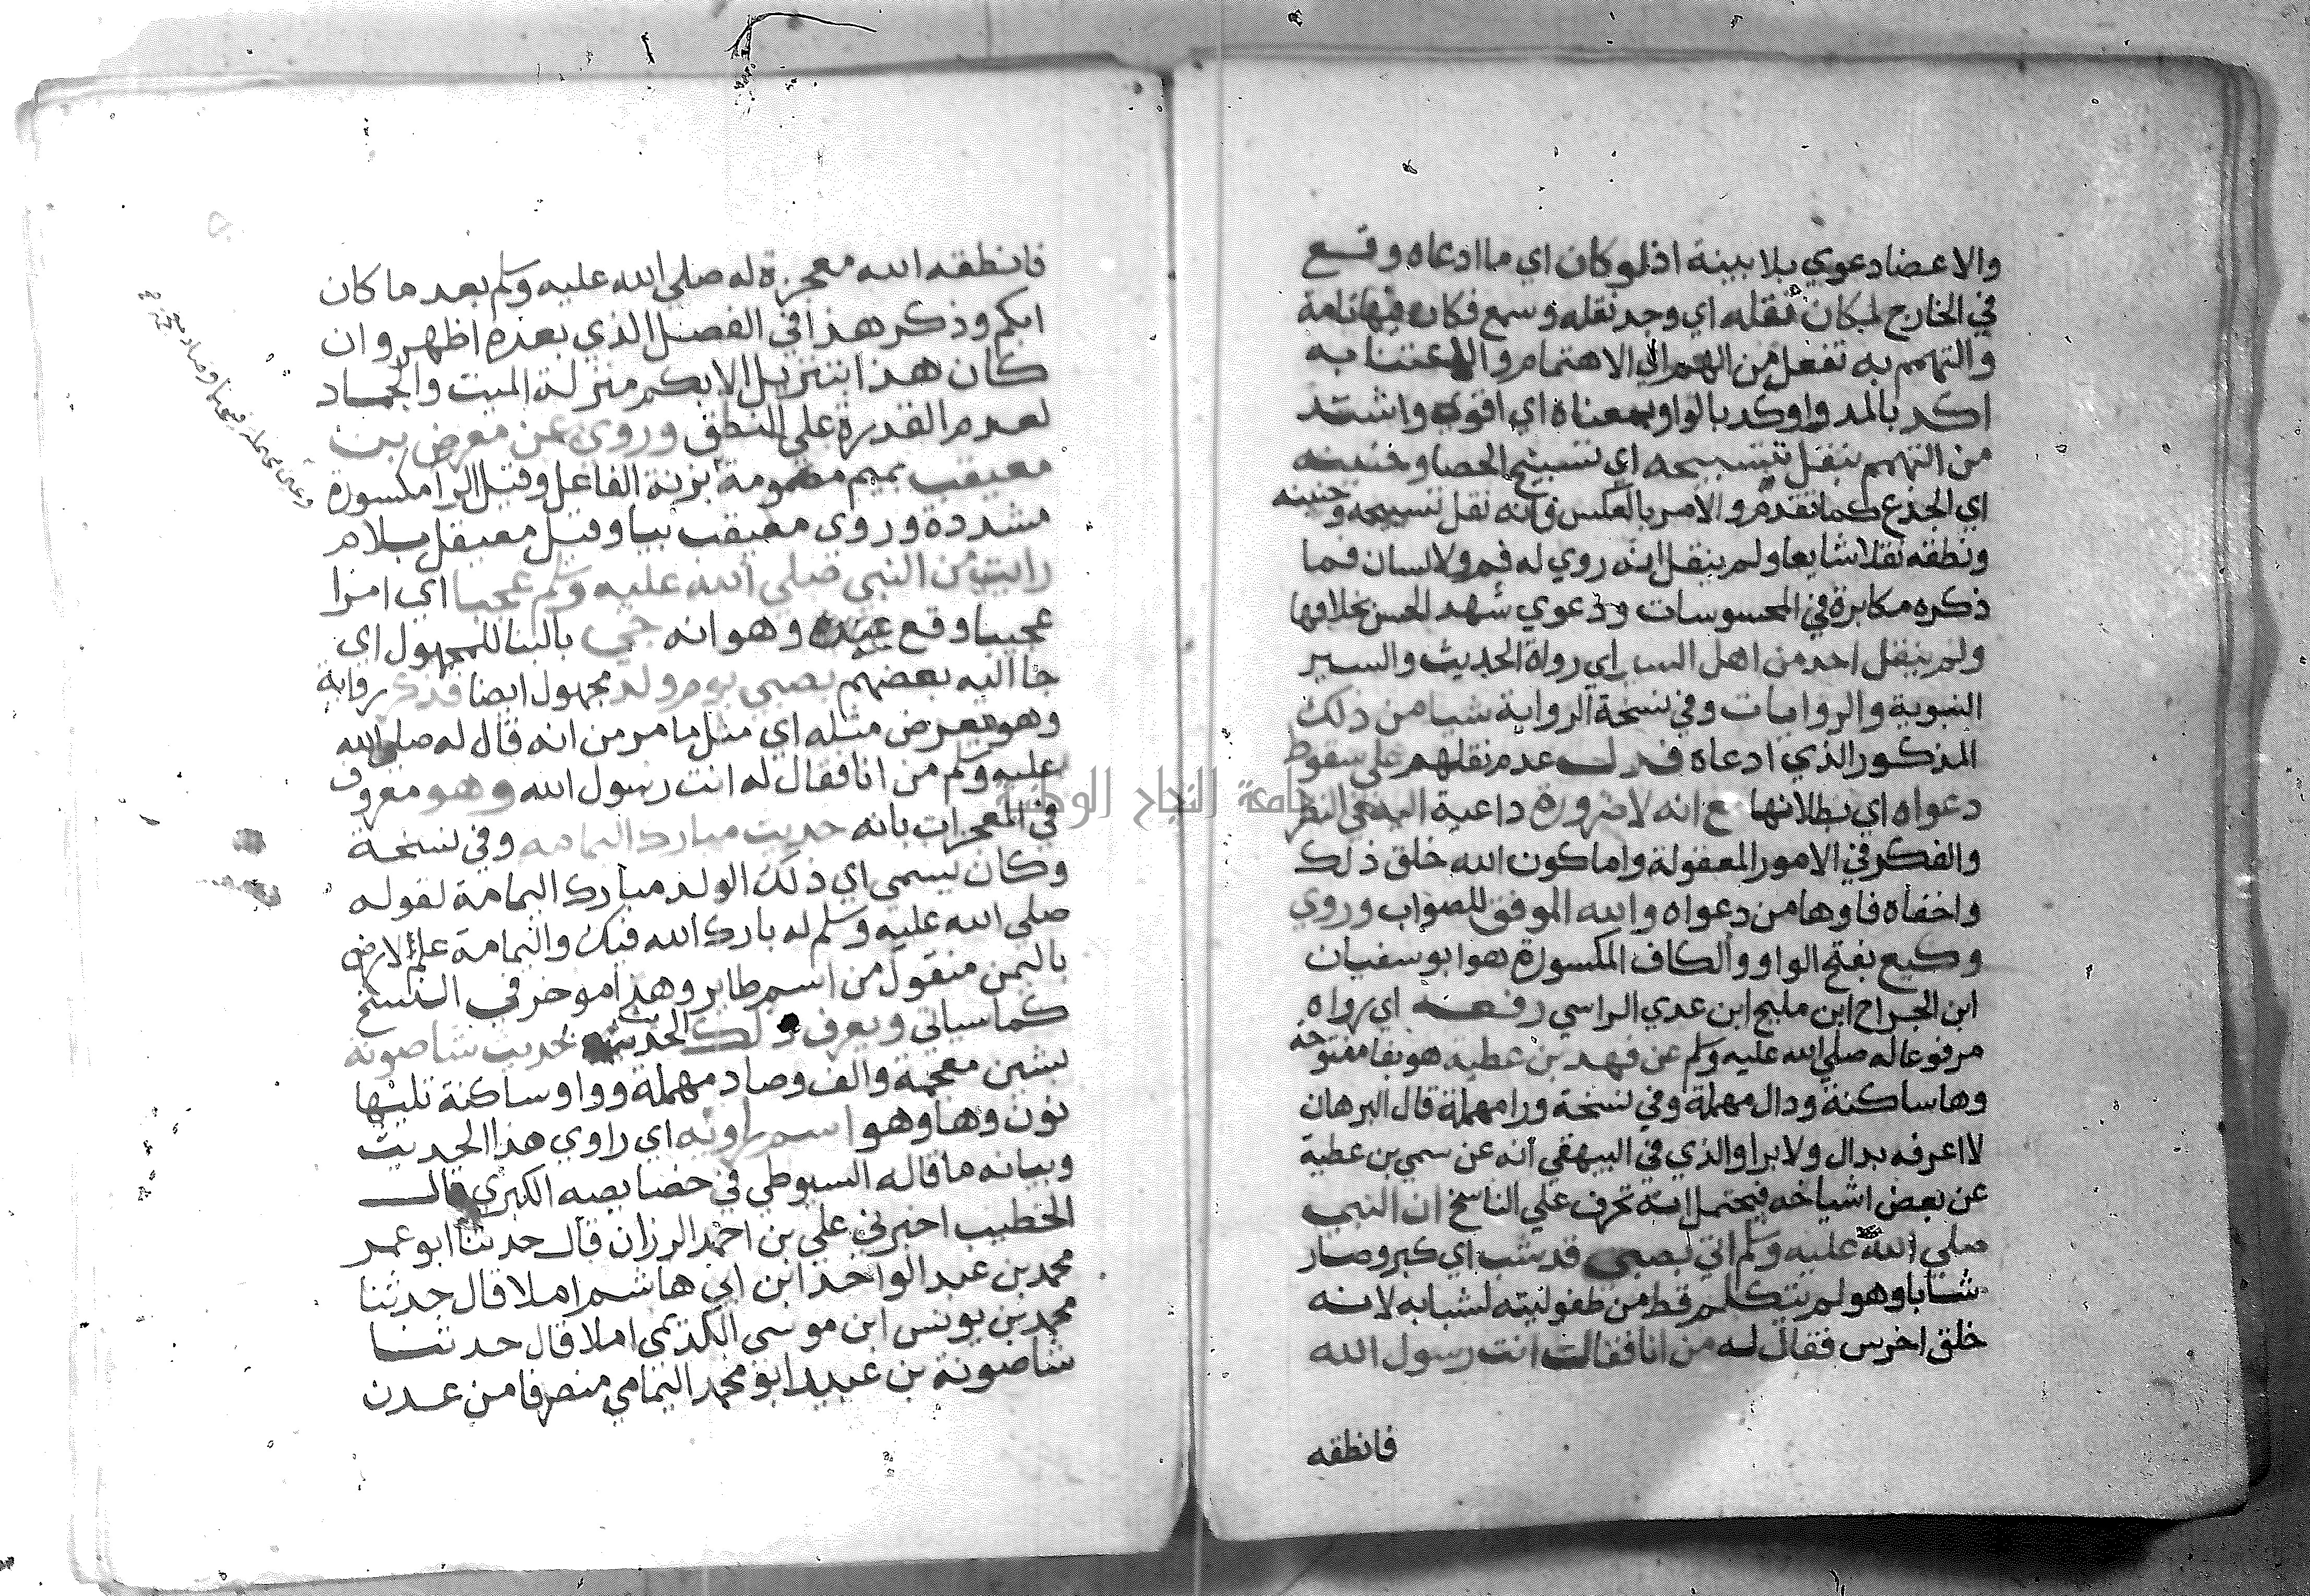 والاعضا دعوي بلا بينة اذ لو كان اي ما ادعاه وقع
في الخارج لكان نقله اي وجد نقله وسمع فكان فيها تامة
والتهمم به تفعل من الهم اي الاهتمام والاعتنا به
اكد بالمد واوكد بالواو بمعناه اي اقوي واشتد
من التهمم بنقل تسبيحه اي تسبيح الحصا وحنينه
اي الجذع كما تقدم والامر بالعكس فانه نقل تسبيحه وحنينه
ونطقه نقلا شايعا ولم ينقل انه روي له فم ولا لسان فما
ذكره مكابرة في المحسوسات ودعوي شهد الحس بخلافها
ولم ينقل احد من اهل السير اي رواة الحديث والسير
النبوية والروايات وفي نسخة الرواية شيا من ذلك
المذكور الذي ادعاه فدل عدم نقلهم علي سقوط
دعواه اي بطلانها مع انه لا ضرورة داعية اليه في النظر
والفكر في الامور المعقولة واما كون الله خلق ذلك
واخفاه فاوها من دعواه والله الموفق للصواب وروي
وكيع بفتح الواو والكاف المكسورة هو ابو سفيان
ابن الجراح ابن مليح ابن عدي الراسي رفعه اي رواه
مرفوعا له صلي الله عليه وسلم عن فهد بن عطية هو بفا مفتوحة
وها ساكنة ودال مهملة وفي نسخة ورا مهملة قال البرهان
لا اعرفه بدال ولا برا والذي في البيهقي انه عن سمي بن عطية
عن بعض اشياخه فيحتمل انه تحرف علي الناسخ ان النبي
صلي الله عليه وسلم اتي بصبي قد شب اي كبر وصار
شابا وهو لم يتكلم قط من طفوليته لشبابه لانه
خلق اخرس فقال له من انا فقالت انت رسول الله
فانطقه
فانطقه الله معجزة له صلي الله عليه وسلم بعد ما كان
ابكم وذكر هذا في الفصل الذي بعده اظهر وان
كان هذا بتنزيل الابكم منزلة الميت والجماد
لعدم القدرة علي النطق وروي عن معرض بن
معيقب بميم مضمومة بزنة الفاعل وقيل الرا مكسورة
مشددة وروي معيقب بيا وقيل معيقل بلام
رايت من النبي صلي الله عليه وسلم عجبا اي امرا
عجيبا وقع عنده وهو انه جي بالبنا للمجهول اي
جا اليه بعضهم بصبي يوم ولد مجهول ايضا فذكر رواية
وهو معرض مثله اي مثل ما مر من انه قال له صلي الله
عليه وسلم من انا فقال له انت رسول الله وهو معروف
في المعجزات بانه حديث مبارك اليمامه وفي نسخة
وكان يسمي اي ذلك الولد مبارك اليمامة لقوله
صلي الله عليه وسلم له بارك الله فيك واليمامة علم لارض
باليمن منقول من اسم طاير وهذا موخر في النسخ
كما سياتي ويعرف ذلك الحديث بحديث شاصونة
بشين معجمة والف وصاد مهملة وواو ساكنة تليها
نون وها وهو اسم راويه اي راوي هذا الحديث
وبيانه ما قاله السيوطي في خصايصه الكبري قال
الخطيب اخبرني علي بن احمد الرزان قال حدثنا ابو عمر
محمد بن عبد الواحد ابن ابي هاشم املا قال حدثنا
محمد بن يونس ابن موسي الكديمي املا قال حدثنا
شاصونة بن عبيد ابو محمد اليمامي منصرفا من عدن
جامعة النجاح الوطنية